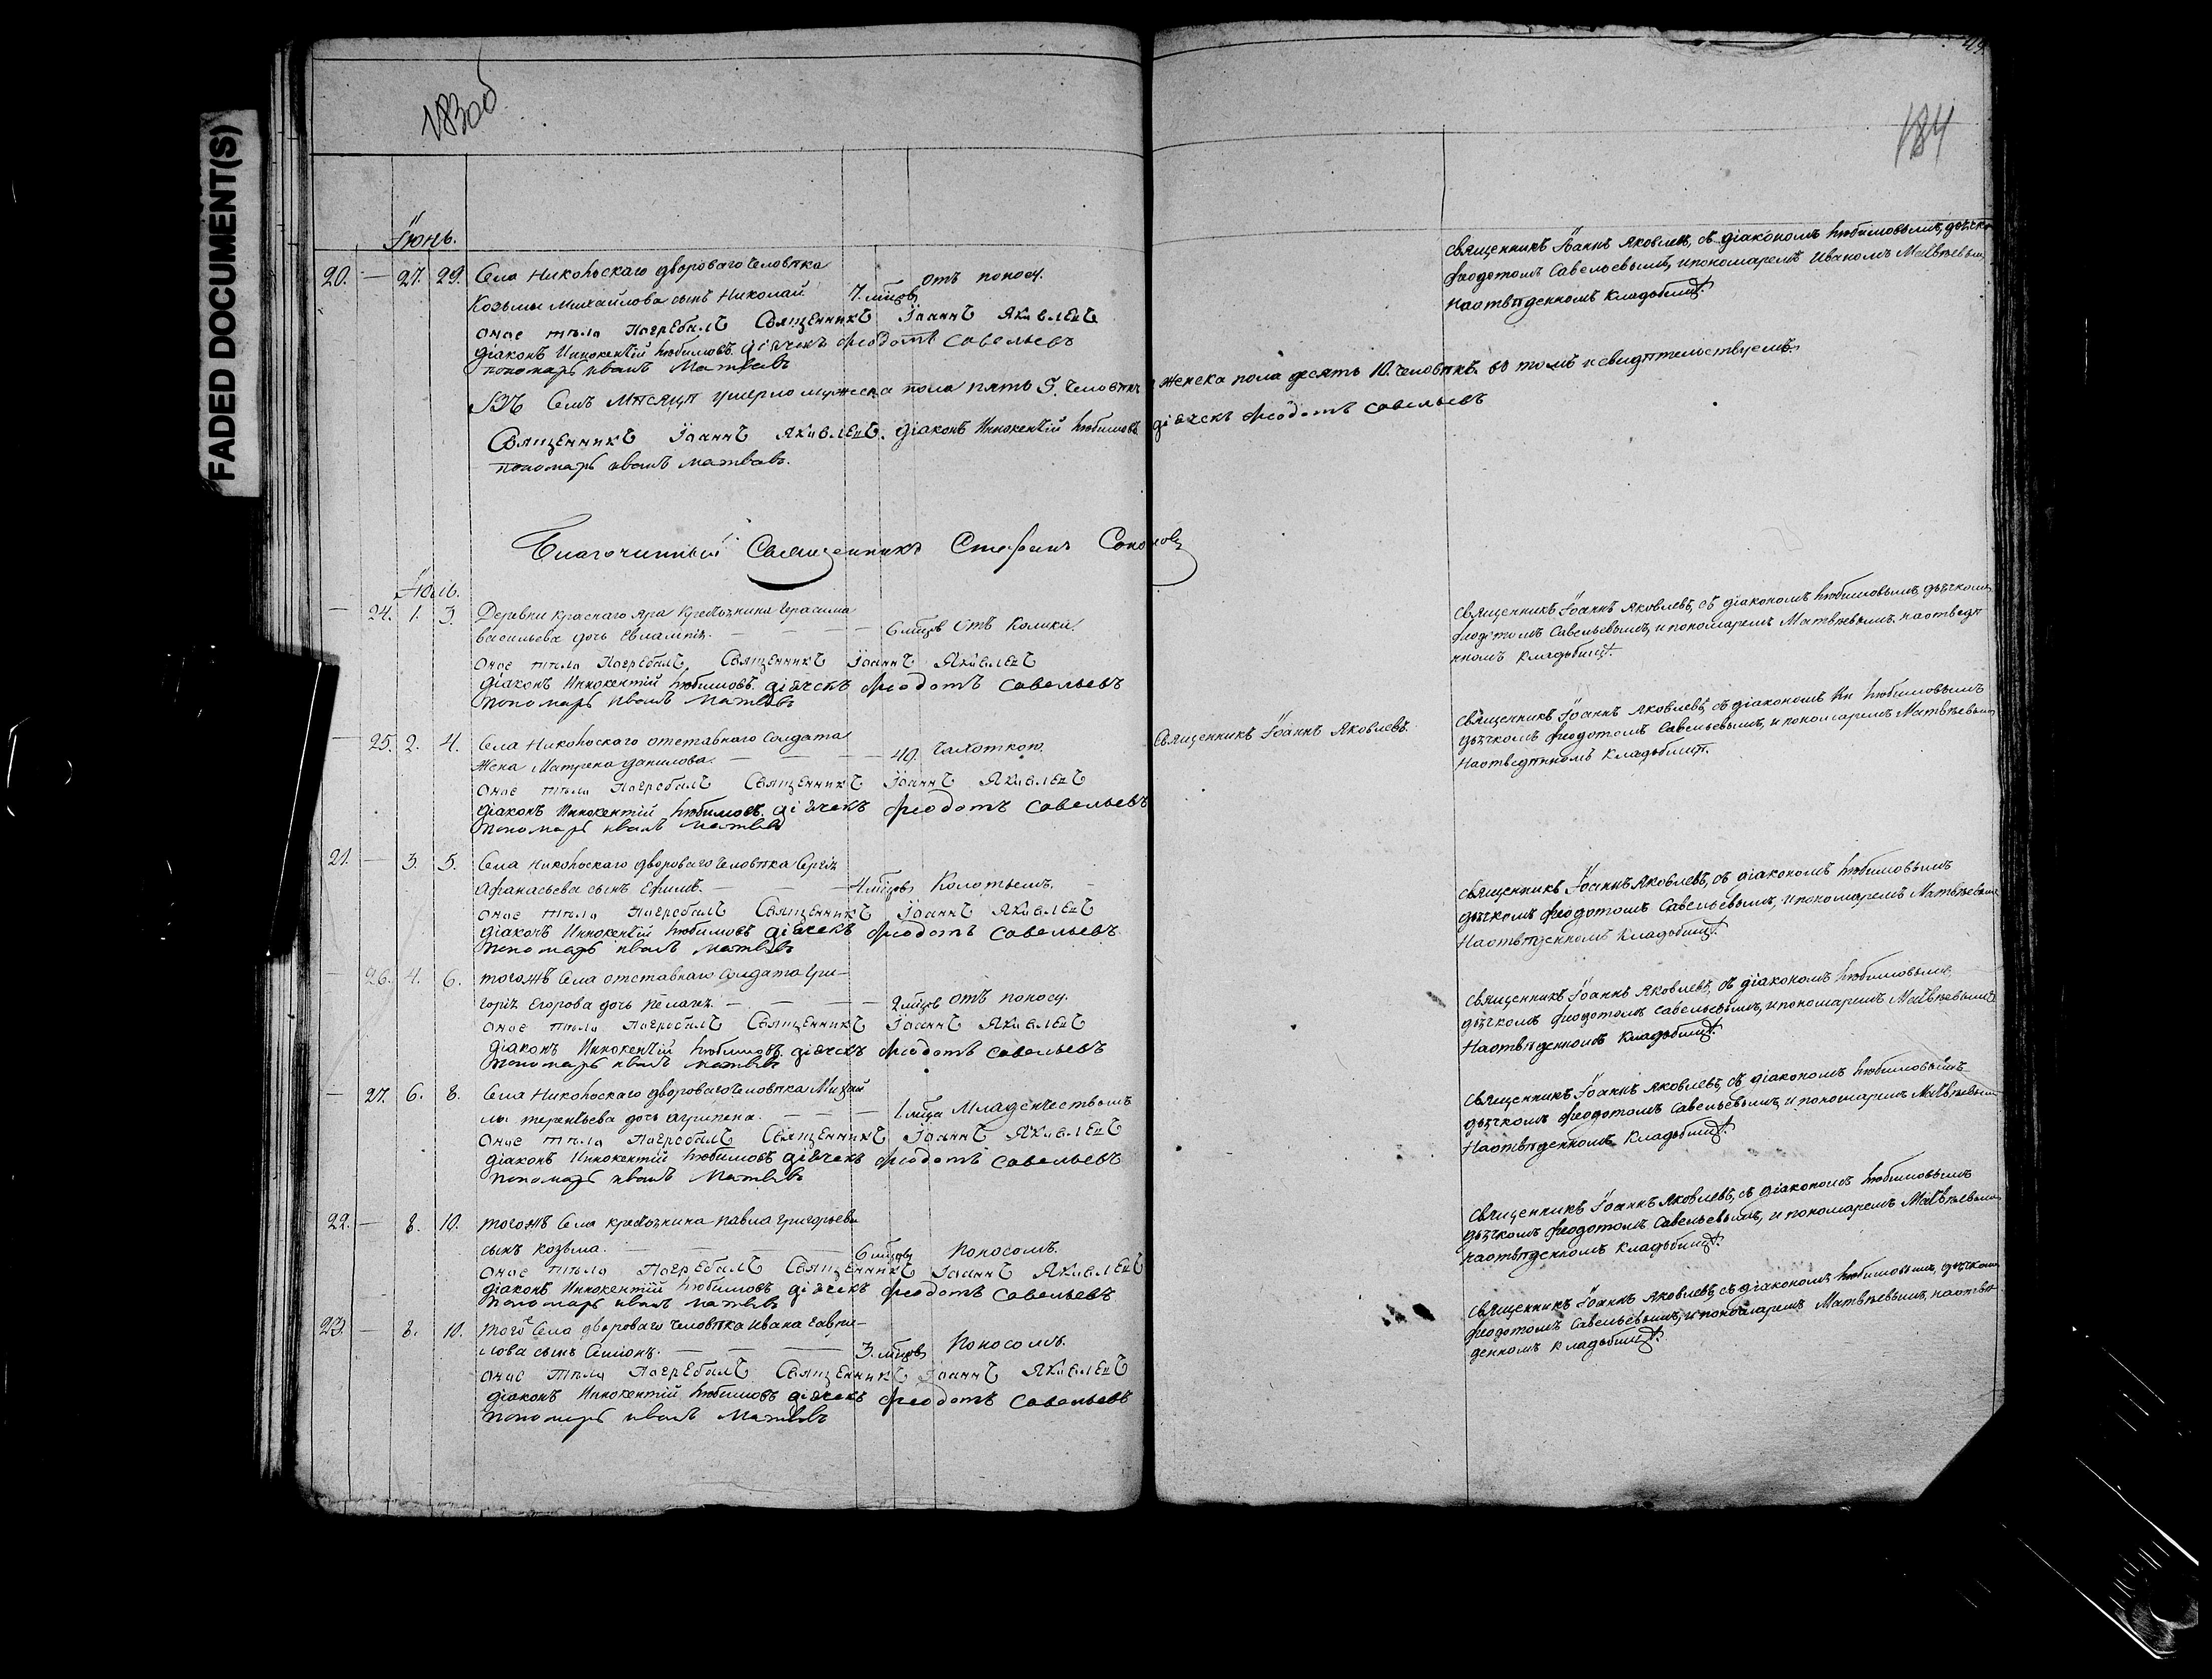 FADED DOCUMENT(S)
183об
184
Іюнь.
20. — 27. 29. Села Никольскаго двороваго человѣка
Козьмы Михайлова сынъ Николай 7. мцовъ отъ поносу.
оное тѣло погребалъ Священникъ Іоаннъ Яковлевъ
діаконъ Иннокентій Любимовъ. діячекъ Феодотъ Савельевъ
пономарь Иванъ Матвѣевъ
Въ семъ мѣсяцѣ умерло мужеска пола пять 5. человѣкъ женска пола десять 10. человѣкъ. въ томъ и свидѣтельствуемъ.
Священникъ Іоаннъ Яковлевъ. діаконъ Иннокентій Любимовъ діячекъ Феодотъ Савельевъ
пономарь Иванъ Матвѣевъ.
Благочинный Священникъ Стефанъ Соколовъ
Іюль.
— 24. 1. 3. Деревни Краснаго Яра крестьянина Герасима
Васильева дочь Евлампія. — — — 6 мцовъ отъ колики.
оное тѣло погребалъ Священникъ Іоаннъ Яковлевъ
діаконъ Иннокентій Любимовъ. діячекъ Феодотъ Савельевъ
пономарь Иванъ Матвѣевъ
— 25. 2. 4. Села Никольскаго отставнаго солдата
жена Матрена Данилова. — — — 49. чахоткою.
оное тѣло погребалъ Священникъ Іоаннъ Яковлевъ
діаконъ Иннокентій Любимовъ. діячекъ Феодотъ Савельевъ
пономарь Иванъ Матвѣевъ
21. — 3. 5. Села Никольскаго двороваго человѣка Сергія
Афанасьева сынъ Ефимъ. — — — 4 мцовъ колотьемъ.
оное тѣло погребалъ Священникъ Іоаннъ Яковлевъ
діаконъ Иннокентій Любимовъ діячекъ Феодотъ Савельевъ
пономарь Иванъ Матвѣевъ
— 26. 4. 6. тогожъ села отставнаго солдата Гри-
горія Егорова дочь Пелагія. — — — 2 мцовъ отъ поносу.
оное тѣло погребалъ Священникъ Іоаннъ Яковлевъ
діаконъ Иннокентій Любимовъ. діячекъ Феодотъ Савельевъ
пономарь Иванъ Матвѣевъ
— 27. 6. 8. Села Никольскаго двороваго человѣка Михай
лы Терентьева дочь Агрипена. — — — 1 мца младенчествомъ
оное тѣло погребалъ Священникъ Іоаннъ Яковлевъ
діаконъ Иннокентій Любимовъ діячекъ Феодотъ Савельевъ
пономарь Иванъ Матвѣевъ
22. — 8. 10. тогожъ села крестьянина Павла Григорьева
сынъ Козьма. — — — 6 мцовъ поносомъ.
оное тѣло погребалъ Священникъ Іоаннъ Яковлевъ
діаконъ Иннокентій Любимовъ діячекъ Феодотъ Савельевъ
пономарь Иванъ Матвѣевъ
23. — 8. 10. того села двороваго человѣка Ивана Гаври-
лова сынъ Симіонъ. — — — 3. мцовъ поносомъ.
оное тѣло погребалъ Священникъ Іоаннъ Яковлевъ
діаконъ Иннокентій Любимовъ діячекъ Феодотъ Савельевъ
пономарь Иванъ Матвѣевъ
священникъ Іоаннъ Яковлевъ, съ діакономъ Любимовымъ, дьячко
Феодотомъ Савельевымъ, и пономаремъ Иваномъ Матвѣевым
на отвѣденномъ кладбищѣ.
священникъ Іоаннъ Яковлевъ, съ діакономъ Любимовымъ, дьячкомъ
Феодотомъ Савельевымъ, и пономаремъ Матвѣевымъ, на отведѣ
нномъ кладбищѣ.
Священникъ Іоаннъ Яковлевъ.
священникъ Іоаннъ Яковлевъ, съ діакономъ Ин Любимовымъ
дьячкомъ Феодотомъ Савельевымъ, и пономаремъ Матвѣевым
на отведѣнномъ кладбищѣ.
священникъ Іоаннъ Яковлевъ, съ діакономъ Любимовымъ
дьячкомъ Феодотомъ Савельевымъ, и пономаремъ Матвѣевым
на отвѣденномъ кладбищѣ.
священникъ Іоаннъ Яковлевъ, съ діакономъ Любимовымъ,
дьячкомъ Феодотомъ Савельевымъ, и пономаремъ Матвѣевымъ
на отвѣденномъ кладбищѣ.
священникъ Іоаннъ Яковлевъ, съ діакономъ Любимовымъ
дьячкомъ Феодотомъ Савельевымъ, и пономаремъ Матвѣевым
на отвѣденномъ кладбищѣ.
священникъ Іоаннъ Яковлевъ, съ діакономъ Любимовымъ
дьячкомъ Феодотомъ Савельевымъ, и пономаремъ Матвѣевым
на отвѣденномъ кладбищѣ.
священникъ Іоаннъ Яковлевъ, съ діакономъ Любимовымъ, дьячкомъ
Феодотомъ Савельевымъ, и пономаремъ Матвѣевымъ, на отвѣ-
денномъ кладбищѣ.